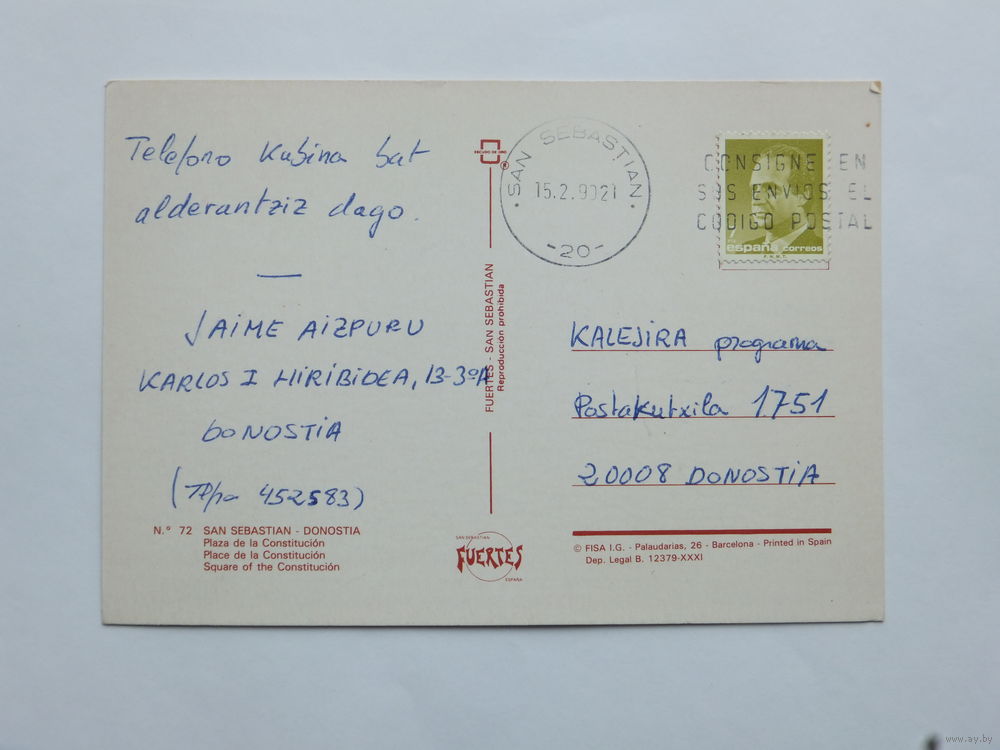 Telefono Kabina bat
alderantziz dago.
JAIME AIZPURU
KARLOS I HIRIBIDEA, 13-3ºA
DONOSTIA
(Tfno 452583)
N.º 72 SAN SEBASTIAN - DONOSTIA
Plaza de la Constitución
Place de la Constitution
Square of the Constitución
ESCUDO DE ORO
®
FUERTES - SAN SEBASTIAN
Reproducción prohibida
SAN SEBASTIAN
FUERTES
ESPAÑA
· SAN SEBASTIAN ·
15.2.9021
-20-
CONSIGNE EN
SUS ENVIOS EL
CODIGO POSTAL
7
españa correos
F.N.M.T.
KALEJIRA programa
Postakutxila 1751
20008 DONOSTIA
© FISA I.G. - Palaudarias, 26 - Barcelona - Printed in Spain
Dep. Legal B. 12379-XXXI
www.ay.by